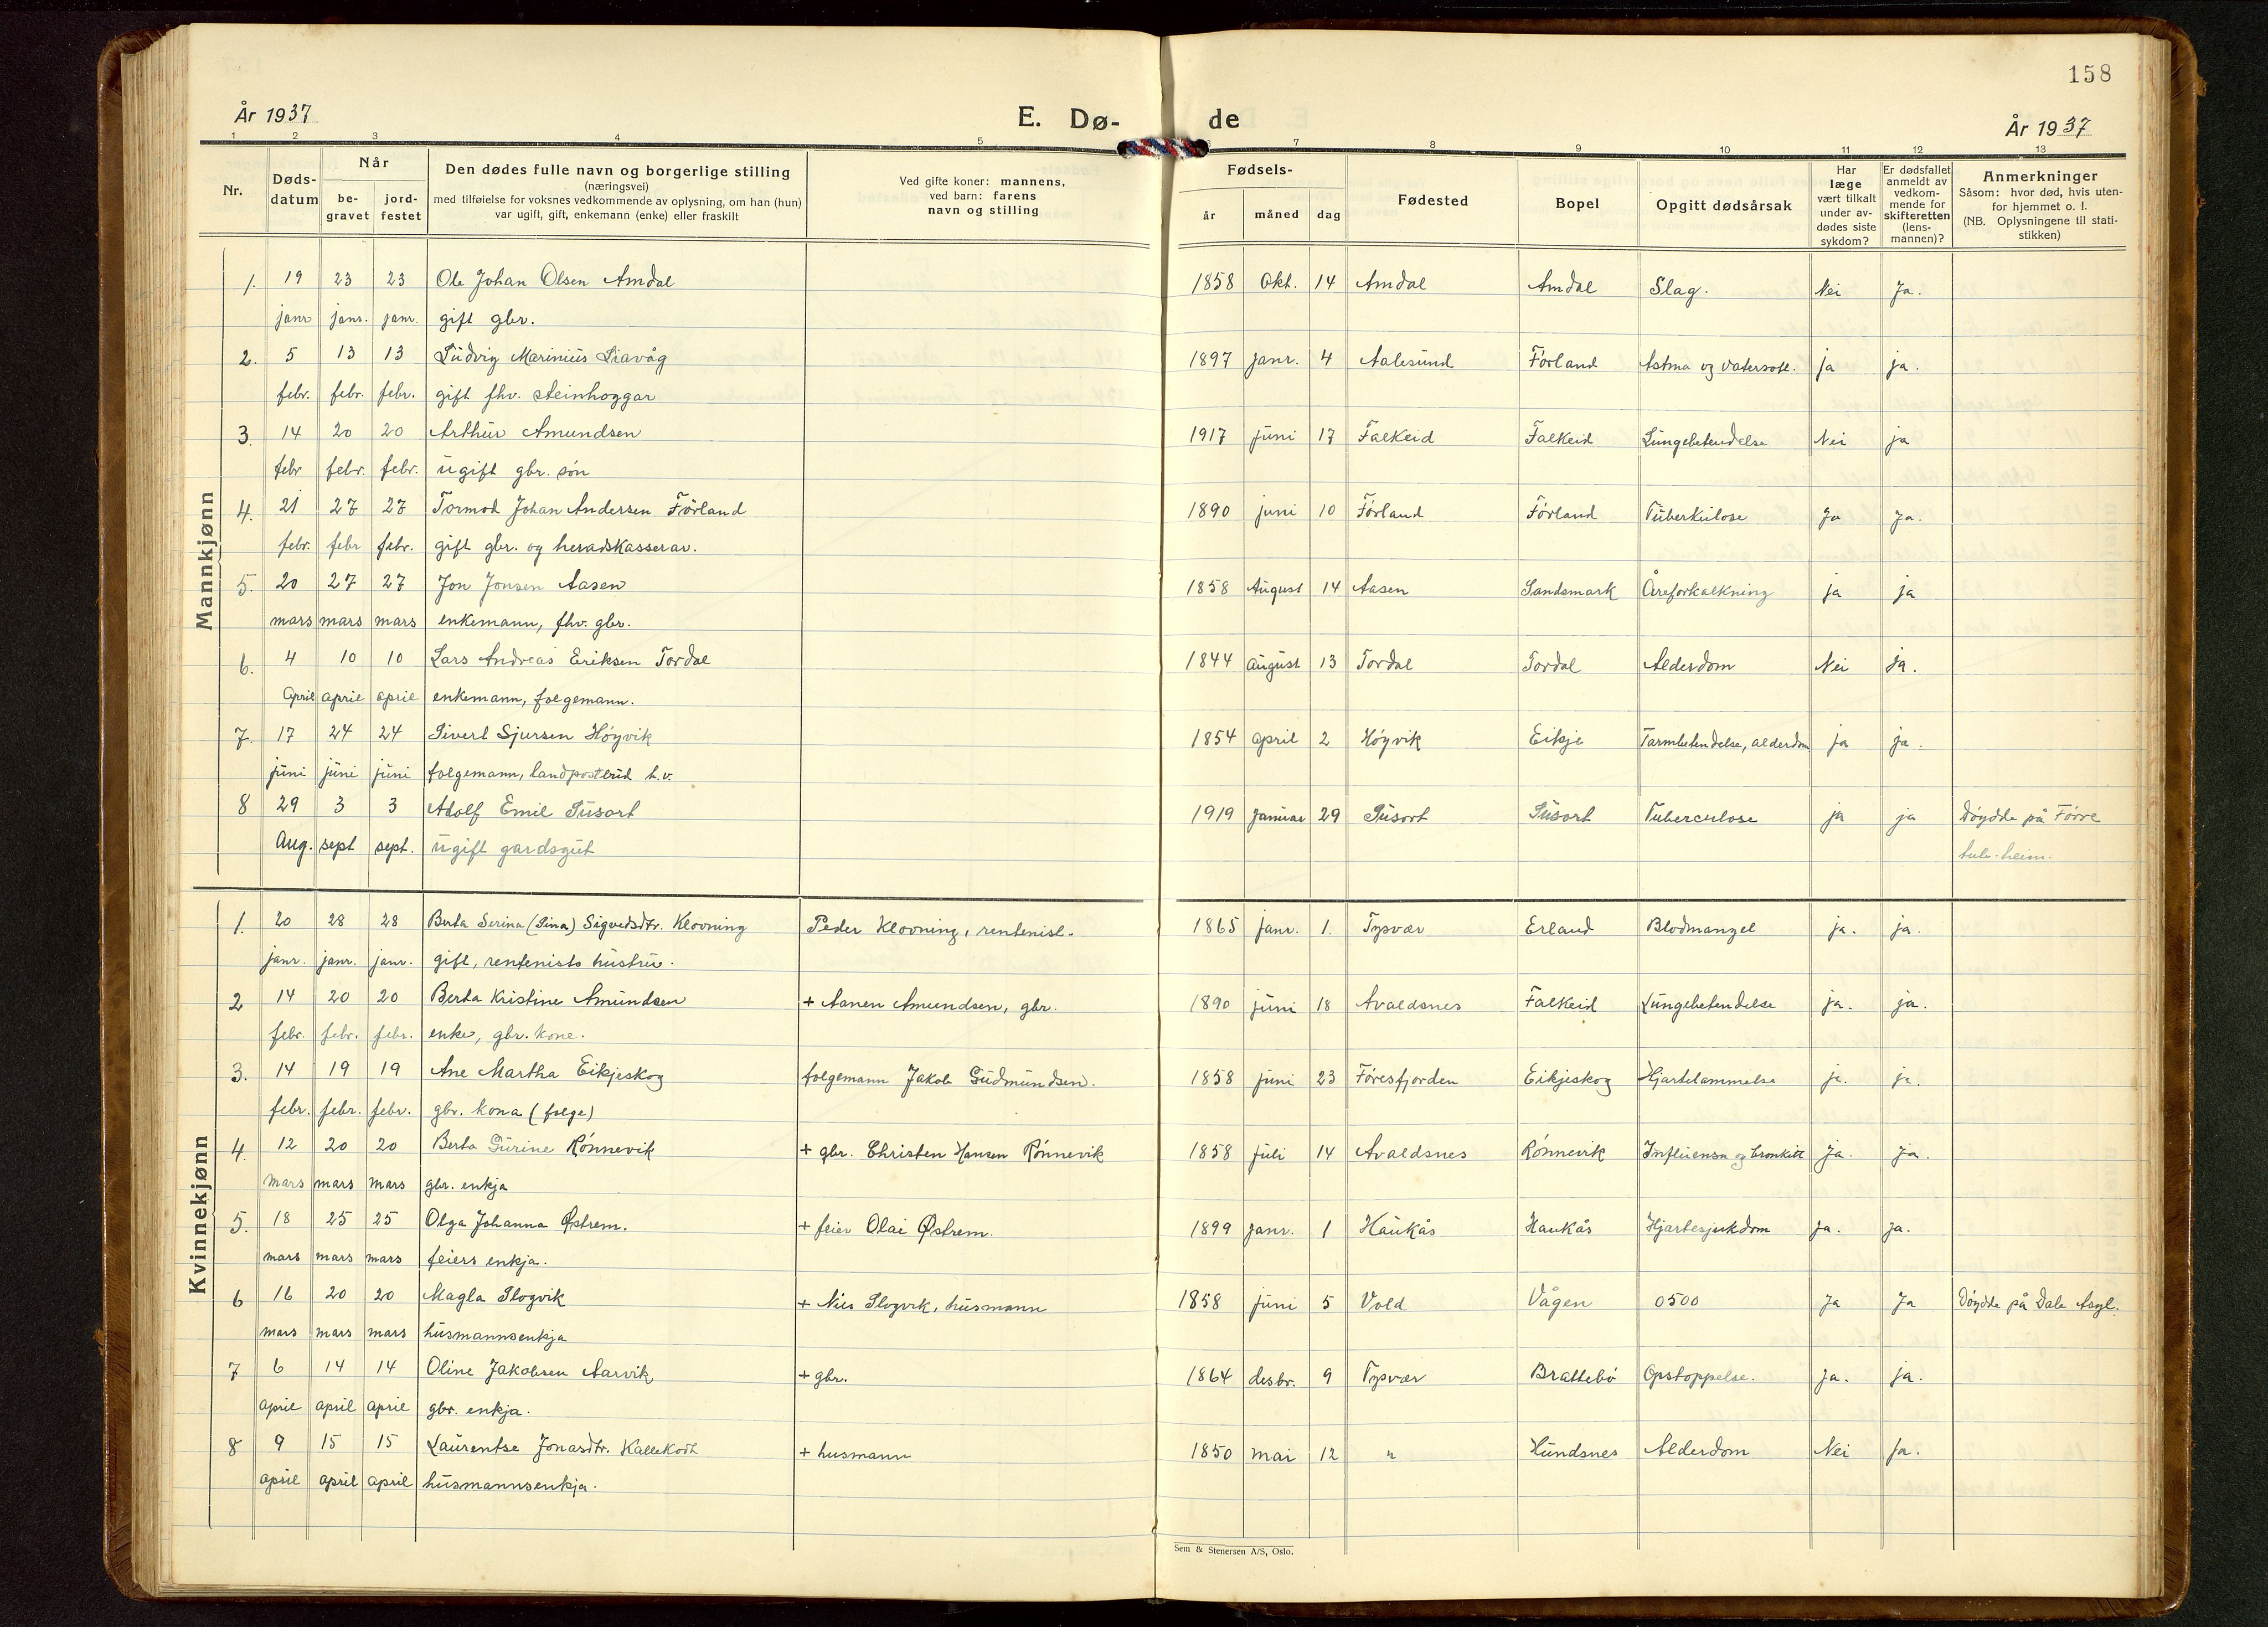 158
År 1937
E. Dø-
de
År 1937
1 2 3 4 5 7 8 9 10 11 12 13
Nr.
Døds-
datum
Når
be-
gravet
jord-
festet
Den dødes fulle navn og borgerlige stilling
(næringsvei)
med tilføielse for voksnes vedkommende av oplysning, om han (hun)
var ugift, gift, enkemann (enke) eller fraskilt
Ved gifte koner: mannens,
ved barn: farens
navn og stilling
Fødsels-
år måned dag
Fødested
Bopel
Opgitt dødsårsak
Har
læge
vært tilkalt
under av-
dødes siste
sykdom?
Er dødsfallet
anmeldt av
vedkom-
mende for
skifteretten
(lens-
mannen)?
Anmerkninger
Såsom: hvor død, hvis uten-
for hjemmet o. l.
(NB. Oplysningene til stati-
stikken)
Mannkjønn
1. 19 23 23 Ole Johan Olsen Amdal 1858 Okt. 14 Amdal Amdal Slag. Nei Ja.
janr janr. janr. gift gbr.
2. 5 13 13 Ludvig Marinius Liavåg 1897 janr. 4 Aalesund Førland Astma og vatersott. ja ja.
febr. febr. febr. gift fhv. steinhoggar
3. 14 20 20 Arthur Amundsen 1917 juni 17 Falkeid Falkeid Lungebetendelse Nei ja
febr febr. febr. ugift gbr. søn
4. 21 27 27 Tormod Johan Andersen Førland 1890 juni 10 Førland Førland Tuberkulose Ja Ja.
febr. febr febr. gift gbr. og heradskasserar.
5. 20 27 27 Jon Jonsen Aasen 1858 August 14 Aasen Sandsmark Åreforkalkning ja ja
mars mars mars enkemann, fhv. gbr.
6. 4 10 10 Lars Andreas Eriksen Tordal 1844 August 13 Tordal Tordal Alderdom Nei ja.
April april april enkemann, folgemann.
7. 17 24 24 Sivert Sjursen Høyvik 1854 april 2 Høyvik Eikje Tarmbetendelse, alderdom ja ja.
juni juni juni folgemann, landpostbud h.v.
8 29 3 3 Adolf Emil Susort 1919 Januar 29 Susort Susort Tuberculose ja ja Døydde på Førre
Aug. sept sept. ugift gardsgut tub. heim.
Kvinnekjønn
1. 20 28 28 Berta Serina (Sina) Sigvedsdtr. Klovning Peder Klovning, rentenist. 1865 janr. 1. Tysvær Erland Blodmangel ja. ja.
janr. janr. janr. gift, rentenists hustru.
2 14 20 20 Berta Kristine Amundsen + Aanen Amundsen, gbr. 1890 juni 18 Avaldsnes Falkeid Lungebetendelse ja. ja.
febr. febr. febr. enke, gbr. kone.
3. 14 19 19 Ane Martha Eikjeskog folgemann Jakob Gudmundsen. 1858 juni 23 Føresfjorden Eikjeskog Hjartelammelse ja. ja.
febr. febr. febr. gbr. kona (folge)
4. 12 20 20 Berta Gurine Rønnevik + gbr. Christen Hansen Rønnevik 1858 juli 14 Avaldsnes Rønnevik Influensa og bronkitt Ja. Ja.
mars mars mars gbr. enkja
5. 18 25 25 Olga Johanna Østrem. + feier Olai Østrem. 1899 janr. 1 Haukås Haukås Hjartesjukdom Ja. Ja.
mars mars mars feiers enkja.
6 16 20 20 Magla Slogvik + Nils Slogvik, husmann 1858 juni 5 Vold Vågen 0500 Ja Ja Døydde på Dale Asyl.
mars mars mars husmannsenkja
7 6 14 14 Oline Jakobsen Aarvik + gbr. 1864 desbr. 9 Tysvær Brattebø Opstoppelse. Ja. ja.
april april april gbr. enkja.
8 9 15 15 Laurentse Jonasdtr. Kallekodt + husmann 1850 mai 12 " Hundsnes Alderdom Nei Ja.
april april april husmannsenkja.
Sem & Stenersen A/S, Oslo.